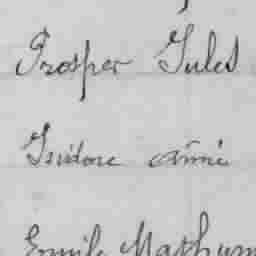 Prosper Jules
Isidore aimé
Emile Mathurin